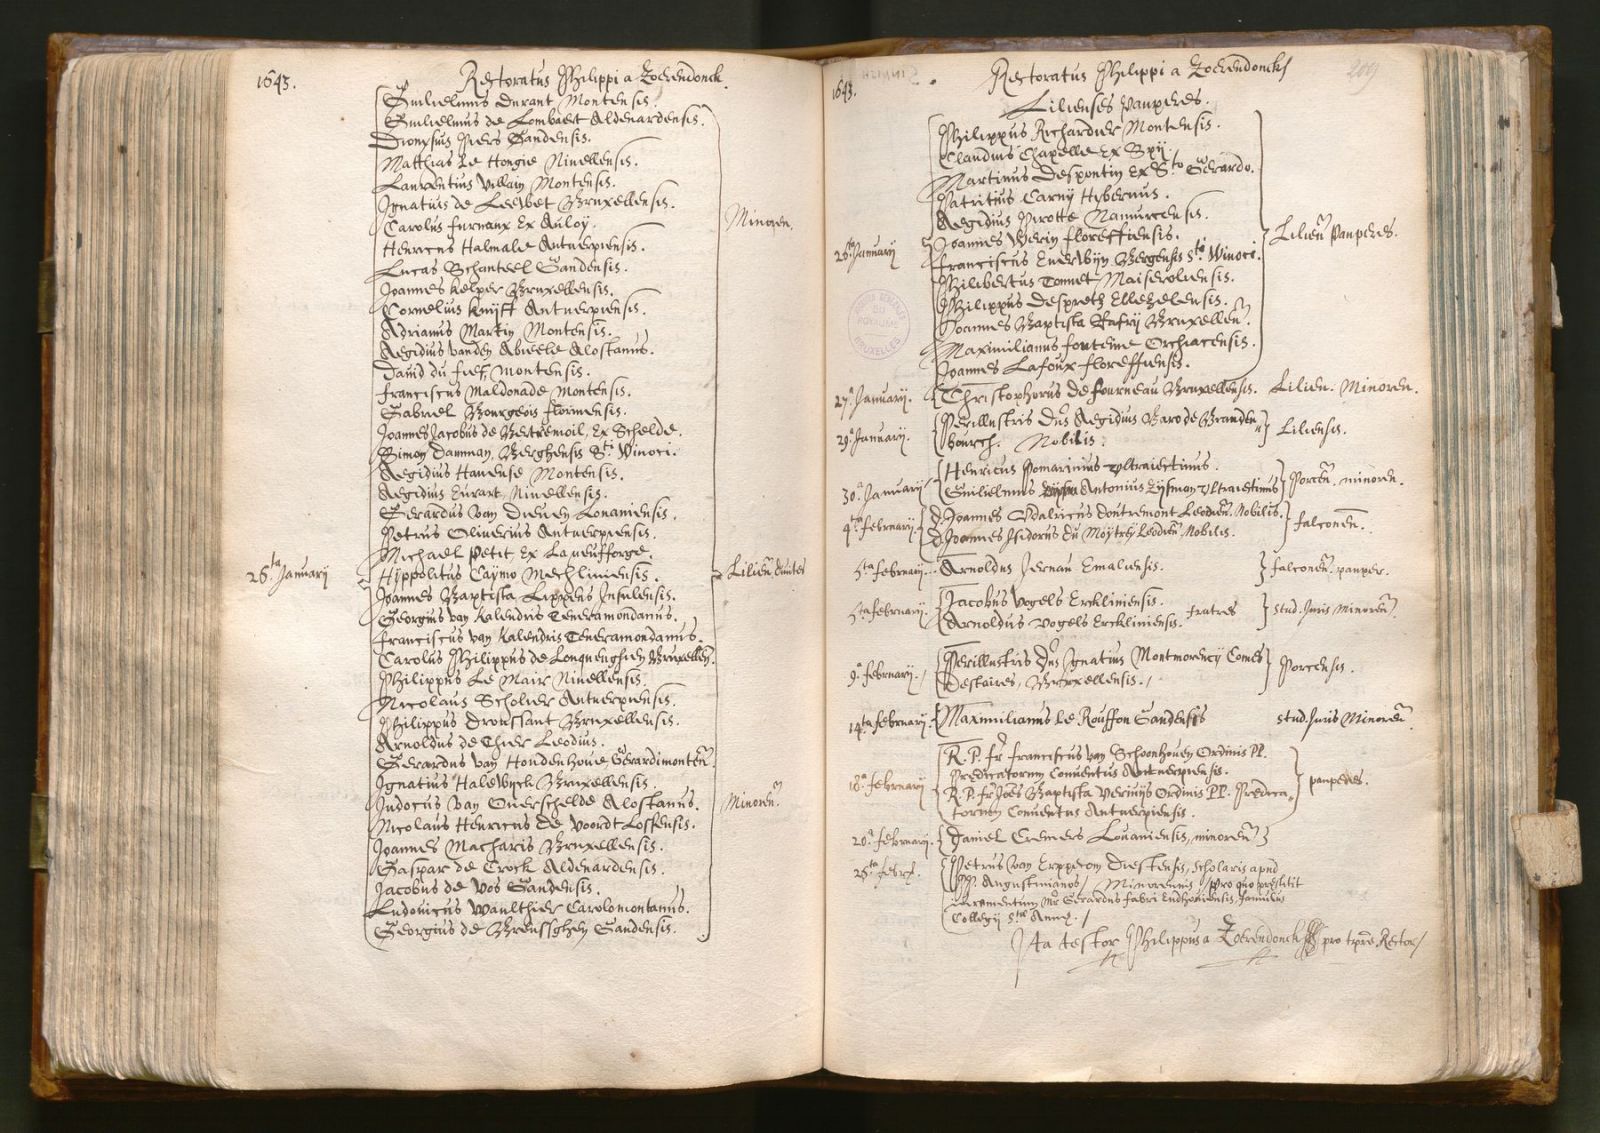 1643.
Rectoratus Philippi a Zoerendonck.
Guilielmus Durant Montensis.
Guilielmus de Lombaert Aldenardensis.
Dionysius Piers Gandensis.
Matthias Le Hongie Niuellensis.
Laurentius Villain Montensis.
Ignatius de Leewbet Bruxellensis.
Carolus furnaux Ex Auloy.
Minoren.
Henricus Halmale Antuerpiensis.
Lucas Schanteel Gandensis.
Joannes Kelper Bruxellensis.
Cornelius Knyff Antuerpiensis.
Adrianus Martin Montensis.
Aegidius vanden Abieele Alostanus.
Dauid du fief, Montensis.
franciscus Maldonade Montensis.
Gabriel Bourgeois
Joannes Jacobus de Ex Schelde.
Simon Damman, Berghensis Sti Winoci.
Aegidius Hauense Montensis.
Aegidius Eurart, Niuellensis.
Gerardus Van Dieuen Louaniensis.
Petrus Oliuerius Antuerpiensis.
Michael Petit Ex
26ta January
Hyppolitus Caymo Mechliniensis.
Lilien dantes
Joannes Baptista Lippens Insulensis.
Georgius van Kalendris Teneramondanus.
franciscus van Kalendris Teneramondanus.
Carolus Philippus de Longuenghien Bruxellen.
Philippus Le Mair Niuellensis.
Nicolaus Scholier Antuerpiensis.
Philippus Droussant Bruxellensis.
Arnoldus de Thier Leodius.
Gerardus van Hondenhoue Gerardimonten.
Ignatius Halewyck Bruxellensis.
Judocus Van Ouerschelde Alostanus.
Minoren.
Nicolaus Henricus de Voordt Loskensis.
Joannes Macharis Bruxellensis.
Gaspar de Crock Aldenardensis.
Jacobus de Vos Gandensis.
Ludouicus Waulthier Carolomontanus.
Georgius de Brensschen Gandensis.
1643.
Rectoratus Philippi a Zoerendonck
209
Lilienses Pauperes.
Philippus Richardier Montensis.
Claudius Chapelle Ex Spy.
Martinus Despontin Ex Sto Gerardo.
Patritius Carny Hybernus.
Aegidius Pirotte Namurcensis.
26ta January
Joannes Werin floreffiensis.
Lilien Pauperes.
franciscus Euerwijn Bergensis Sti Winoci.
Philibertus Tonnet
Philippus Despretz Ellezelensis.
Joannes Baptista Rafry Bruxellen.
Maximilianus fonteine Orchiacensis.
Joannes Lafoux floreffiensis.
27a January.
Christophorus de fourneau Bruxellensis.
Lilien. Minoren.
29a January.
Perillustris Dns Aegidius Baro de Branden
bourch. Nobilis.
Liliensis.
30a January
Henricus Pomarinus Vltraiectinus.
Guilielmus Antonius Zysman Vltraiectinus
Porcen. minoren.
4ta february.
d. Joannes Vdalricus dontremont Leodien. Nobilis.
d. Joannes Isidorus du Moytrey Leodien Nobilis.
falconen.
5ta february...
Arnoldus Jernau Emaliensis.
falconen. pauper.
5ta february.
Jacobus Vogels Erckliniensis.
Arnoldus Vogels Erckliniensis.
fratres
stud. Juris Minoren.
9a february.
Perillustris Dns Ignatius Montmorency Comes
Destaires, Bruxellensis.
Porcensis.
14ta february.
Maximilianus le Rouffon Gandensis
stud. Juris Minoren.
18a february
R. P. fr franciscus van Schoonhouen Ordinis PP.
Predicatorum Conuentus Antuerpiensis.
R. P. fr Joes Baptista Verniys Ordinis PP. Predica-
torum Conuentus Antuerpiensis.
pauperes.
20a february.
Daniel Cremers Louaniensis, minoren
26ta febr.
Petrus Van Erppecom Diestensis, Scholaris apud
PP. Augustinianos / Minorennis / Pro quo prestitit
iuramentum Mr Gerardus fabri Endhouiensis,
Collegy Stae Annae.
Ita testor Philippus a Zoerendonck pro tpre Rector
ROYAUME
BRUXELLES